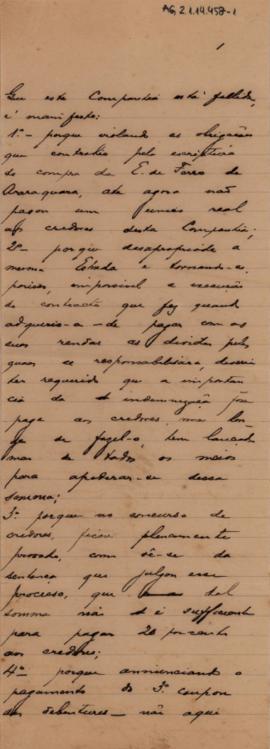 AG.2.1.14.458-1
1
Que esta Companhia está fallida,
é manifesto:
1º - porque violando as obrigações
que contrahio pela escriptura
de compra da E. de Ferro de
Araraquara, até agora não
pagou um único real
aos credores desta Companhia;
2º - porque desapropriada a
mesma Estrada e tornando-se,
porisso, impossivel a execução
do contracto que fez quando
adquerio-a - de pagar com as
suas rendas as dividas pelas
quaes se responsabilisára, deveria
ter requerido que a importan
cia da indemnização fosse
paga aos credores, mas lon-
ge de fazel-o, tem lançado
mão de todos os meios
para apoderar-se dessa
somma;
3º porque no concurso de
credores, ficou plenamente
provado, com vê-se da
sentença que julgou esse
processo, que tal
somma não é sufficiente
para pagar 20 por cento
aos credores;
4º - porque annunciando o
pagamento do 3º coupon
dos debentures - não aqui